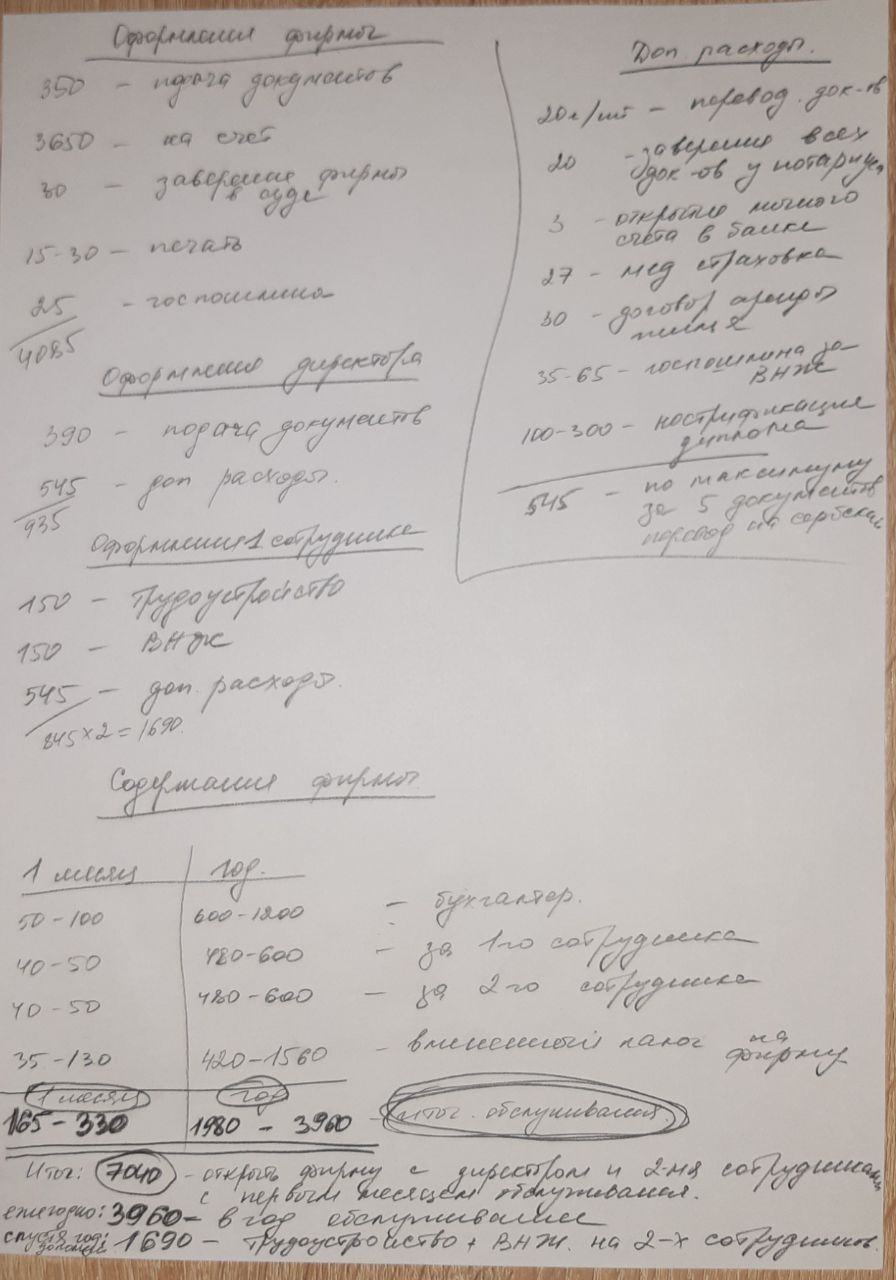 Оформления фирмы
350 – подача документов
3650 – на счёт
30 – заверение фирмы
в суде
15-30 – печать
25 – госпошлина
4085
Оформление директора
390 – подача документов
545 – доп расходы.
935
Оформления 1 сотрудника
150 – Трудоустройство
150 – ВНЖ
545 – доп. расходы.
845 x 2 = 1690.
Доп. расходы.
– перевод. док-ов
20 – заверение всех
док-ов у нотариуса
3 – открытие личного
счёта в банке
27 – мед страховка
30 – договор аренды
жилья
35-65 – госпошлина за
ВНЖ
100-300 – нострификация
диплома
545 – по максимуму
за 5 документов
перевод на сербский
Содержания фирмы
1 месяц | год.
50-100 | 600-1200 – бухгалтер.
40-50 | 480-600 – за 1-го сотрудника
40-50 | 480-600 – за 2-го сотрудника
35-130 | 420-1560 – вмененный налог на
фирму
1 месяц | год
165-330 | 1980-3960 – итог. обслуживания.
Итог: 7040 – открыть фирму с директором и 2-мя сотрудниками
с первым месяцем обслуживания.
ежегодно: 3960 – в год обслуживание
спустя год: 1690 – трудоустройство + ВНЖ. на 2-х сотрудников.